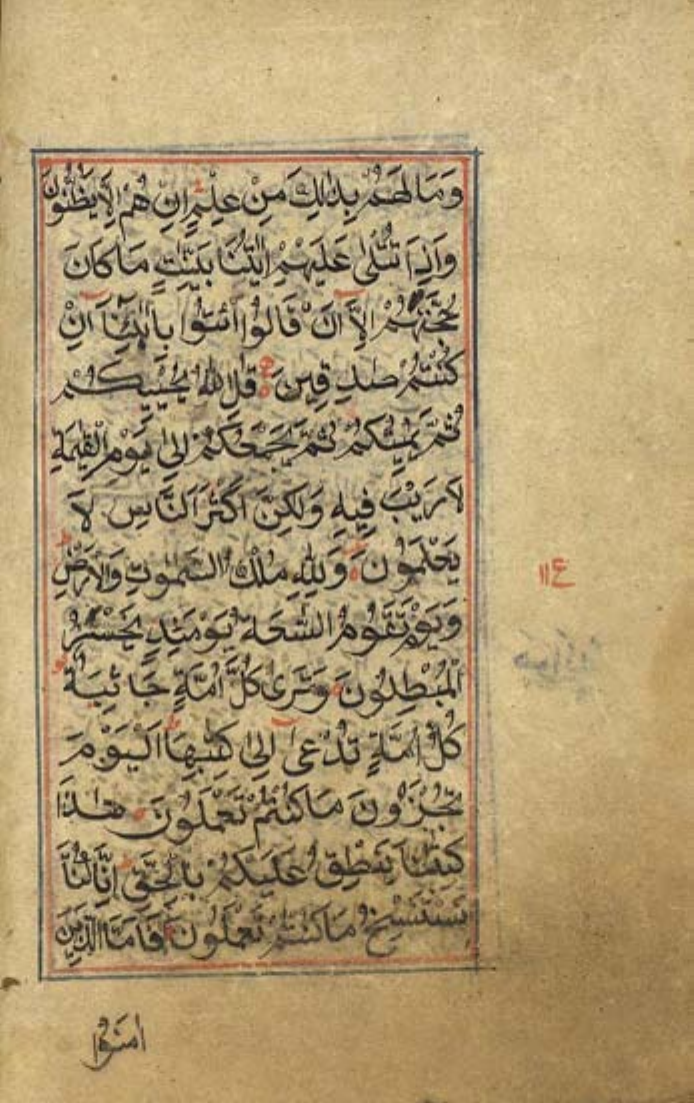 وَمَا لَهُمْ بِذٰلِكَ مِنْ عِلْمٍ اِنْ هُمْ اِلَّا يَظُنُّونَ
وَاِذَا تُتْلٰى عَلَيْهِمْ اٰيٰتُنَا بَيِّنٰتٍ مَا كَانَ
حُجَّتَهُمْ اِلَّا اَنْ قَالُوا ائْتُوا بِاٰبَائِنَا اِنْ
كُنْتُمْ صٰدِقِينَ قُلِ اللهُ يُحْيِيكُمْ
ثُمَّ يُمِيتُكُمْ ثُمَّ يَجْمَعُكُمْ اِلٰى يَوْمِ الْقِيٰمَةِ
لَا رَيْبَ فِيهِ وَلٰكِنَّ اَكْثَرَ النَّاسِ لَا
يَعْلَمُونَ وَلِلّٰهِ مُلْكُ السَّمٰوٰتِ وَالْاَرْضِ
وَيَوْمَ تَقُومُ السَّعَةُ يَوْمَئِذٍ يَخْسَرُ
الْمُبْطِلُونَ وَتَرٰى كُلَّ اُمَّةٍ جَاثِيَةً
كُلُّ اُمَّةٍ تُدْعٰى اِلٰى كِتٰبِهَا اَلْيَوْمَ
تُجْزَوْنَ مَا كُنْتُمْ تَعْمَلُونَ هٰذَا
كِتٰبُنَا يَنْطِقُ عَلَيْكُمْ بِالْحَقِّ اِنَّا كُنَّا
نَسْتَنْسِخُ مَا كُنْتُمْ تَعْمَلُونَ فَاَمَّا الَّذِينَ
اٰمَنُوا